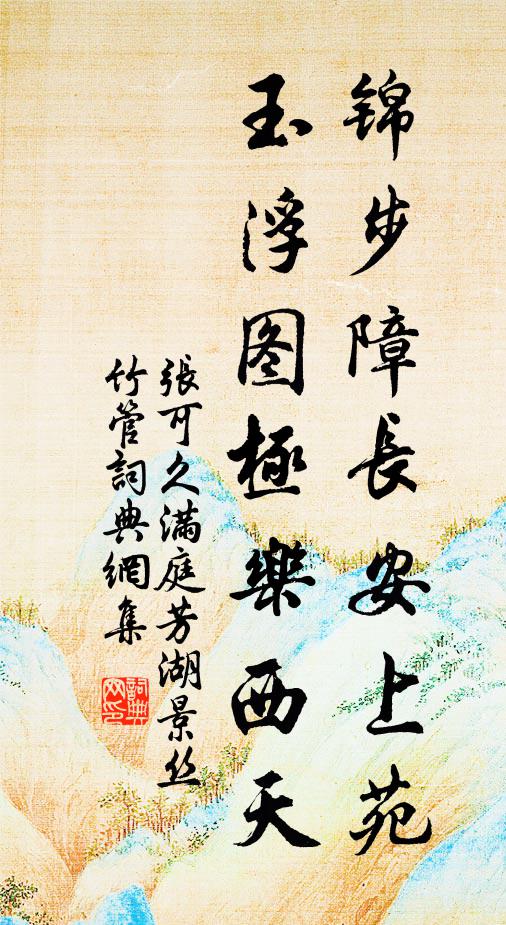 锦步障長安上苑
玉浮图極樂西天
張可久满庭芳湖景丝
竹管詞典網集
詞典网印